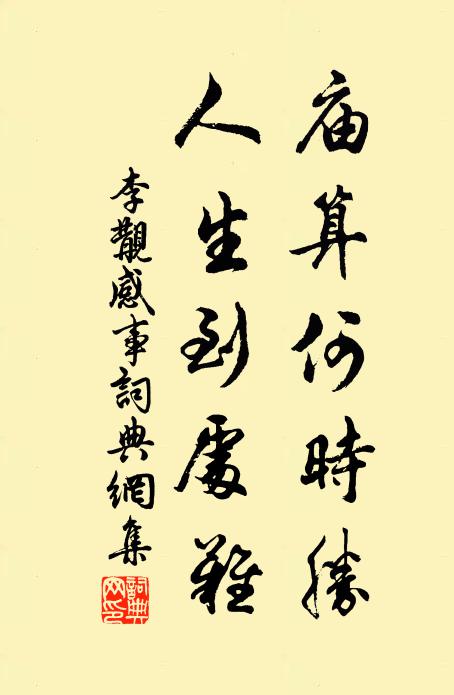 庙算何時勝
人生到處難
李覯感事詞典網集
詞典
网印